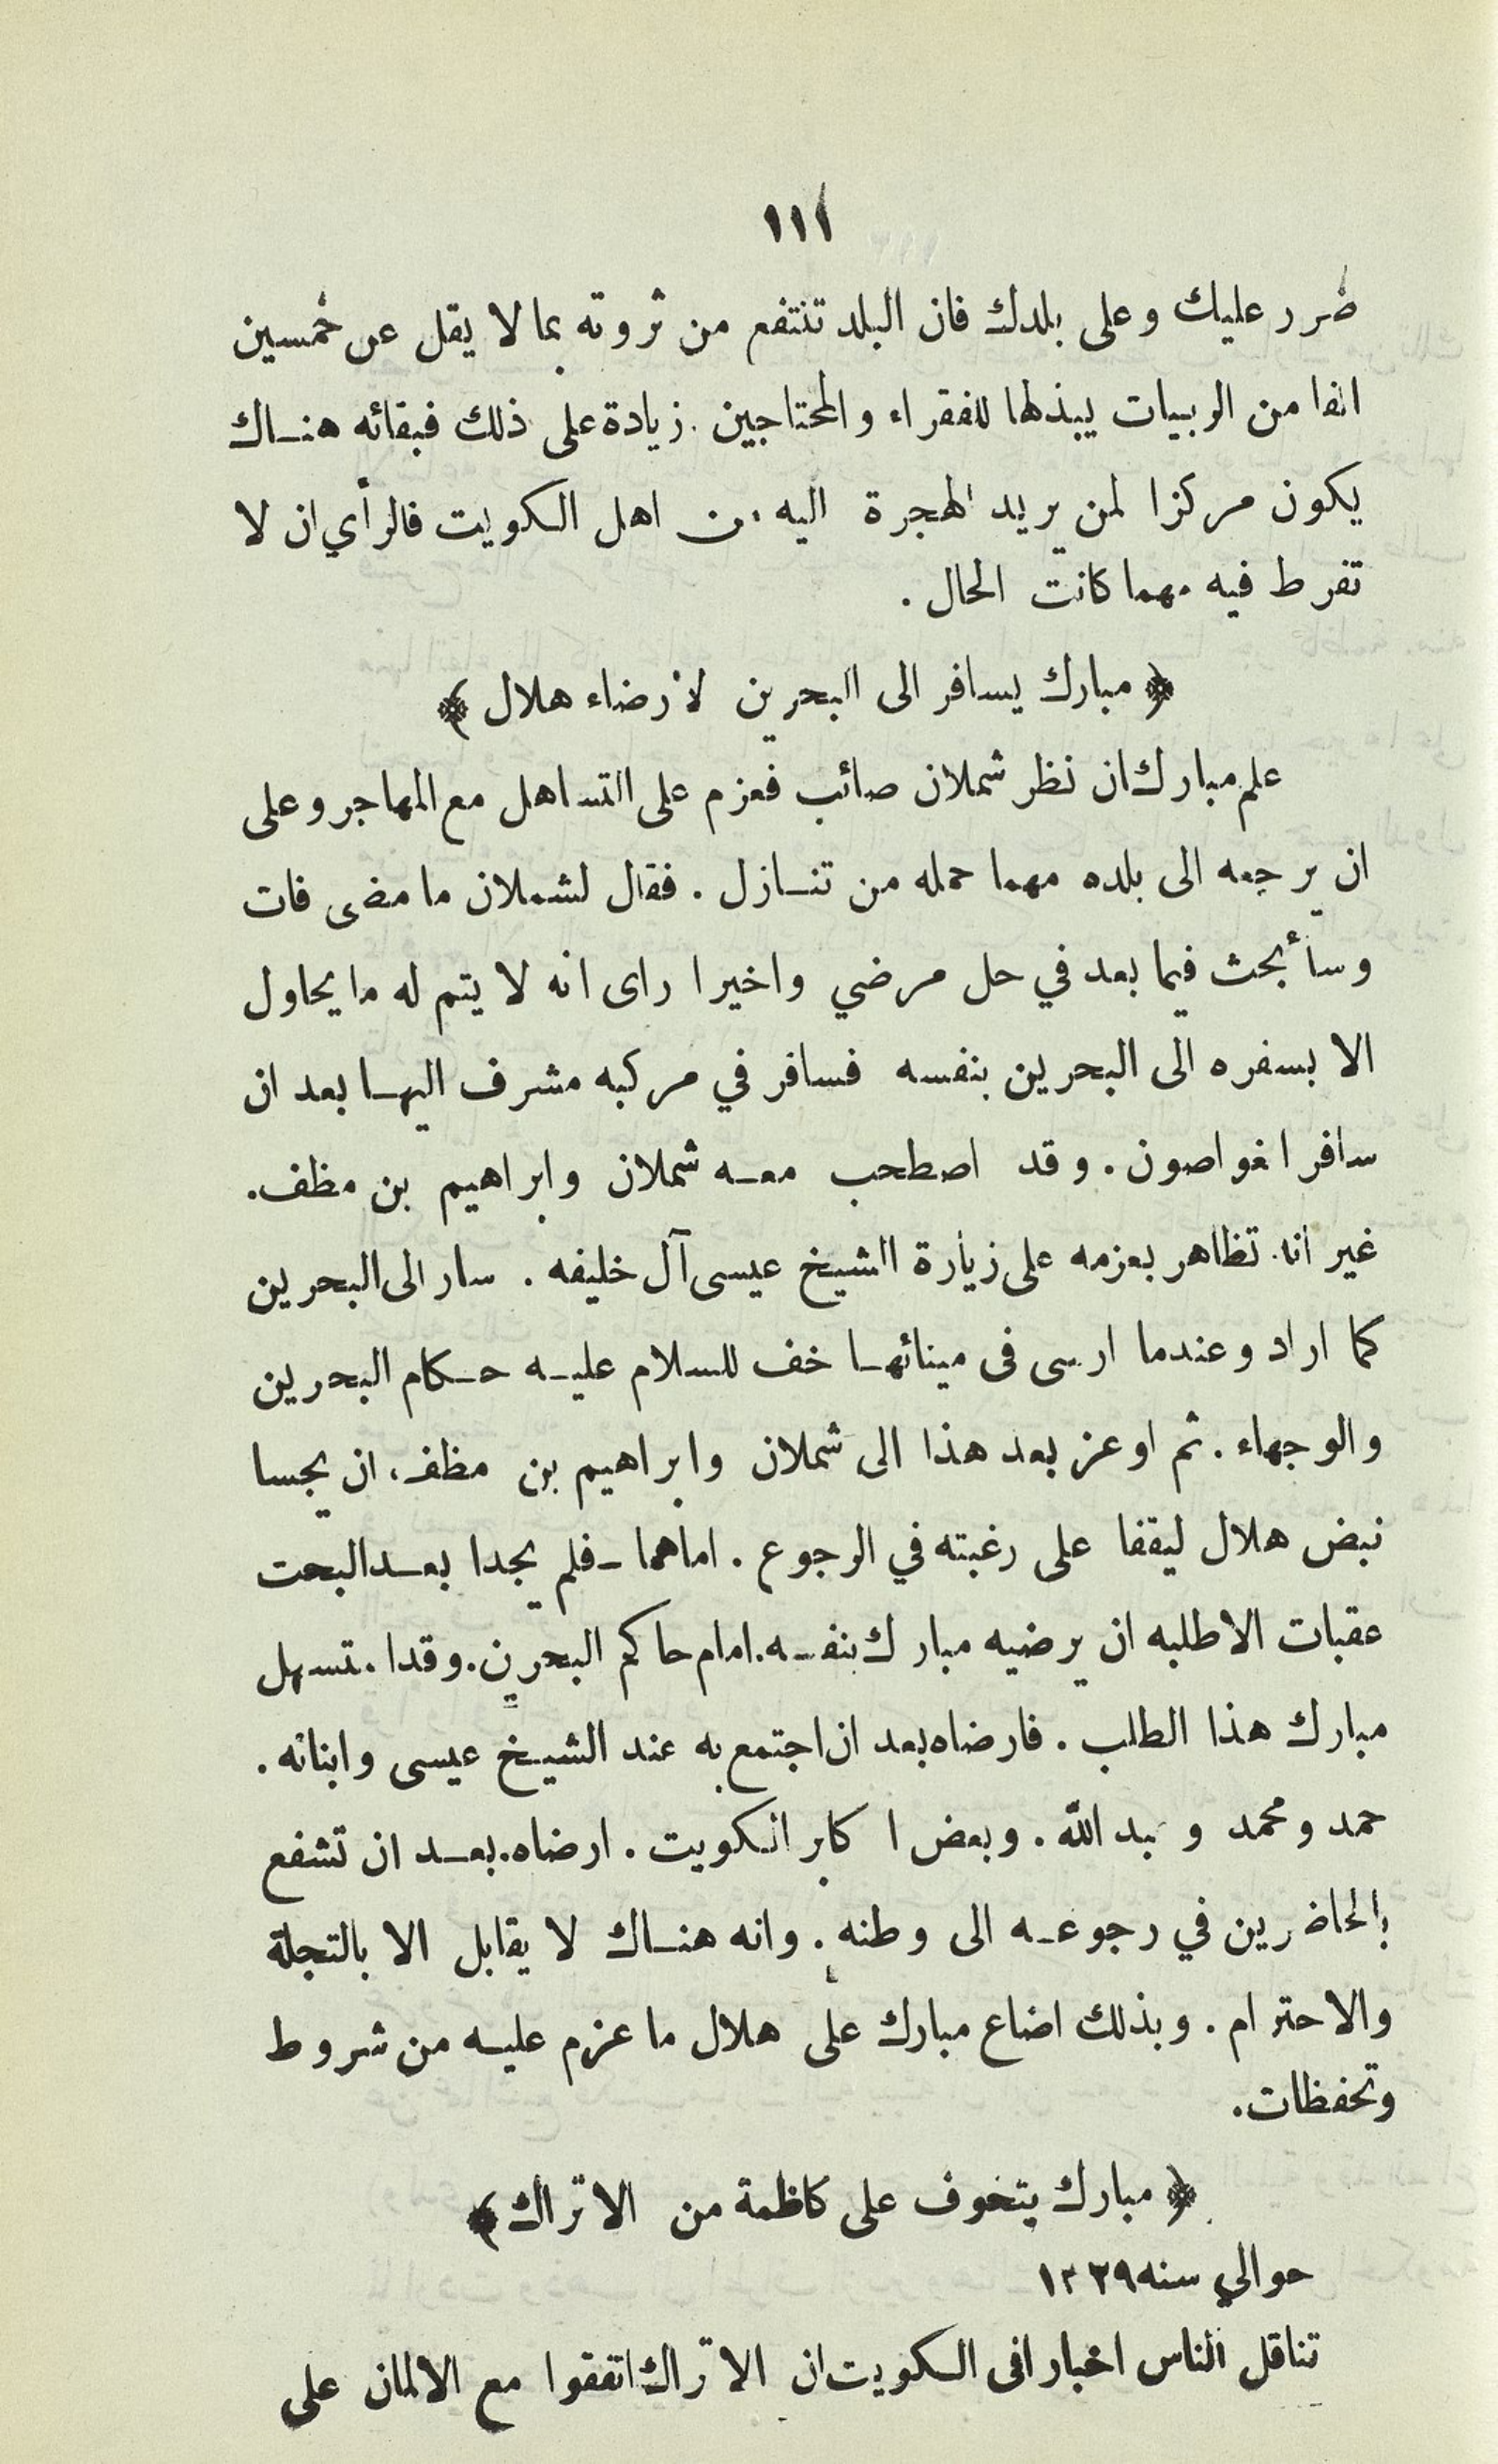 ١١١
ضرر عليك وعلى بلدك فان البلد تنتفع من ثروته بما لا يقل عن خمسين
الفا من الربيات يبذلها للفقراء والمحتاجين. زيادة على ذلك فبقائه هناك
يكون مركزا لمن يريد الهجرة اليه من اهل الكويت فالرأي ان لا
تفرط فيه مهما كانت الحال .
﴿ مبارك يسافر الى البحرين لأرضاء هلال ﴾
علم مبارك ان نظر شملان صائب فعزم على التساهل مع المهاجر وعلى
ان يرجعه الى بلده مهما حمله من تنازل . فقال لشملان ما مضى فات
وسأبحث فيما بعد في حل مرضي واخيرا راى انه لا يتم له ما يحاول
الا بسفره الى البحرين بنفسه فسافر في مركبه مشرف اليها بعد ان
سافر الغواصون . وقد اصطحب معه شملان وابراهيم بن مظف.
غير انه تظاهر بعزمه على زيارة الشيخ عيسى آل خليفه . سار الى البحرين
كما اراد وعندما ارسى فى مينائها خف للسلام عليه حكام البحرين
والوجهاء . ثم اوعز بعد هذا الى شملان وابراهيم بن مظف. ان يجسا
نبض هلال ليقفا على رغبته في الرجوع . اماهما ـ فلم يجدا بعد البحت
عقبات الا طلبه ان يرضيه مبارك بنفسه. امام حاكم البحرين. وقد استسهل
مبارك هذا الطلب . فارضاه بعد ان اجتمع به عند الشيخ عيسى وابنائه .
حمد ومحمد وعبد الله . وبعض اكابر الكويت . ارضاه. بعد ان تشفع
بالحاضرين في رجوعه الى وطنه . وانه هناك لا يقابل الا بالتجلة
والاحترام . وبذلك اضاع مبارك على هلال ما عزم عليه من شروط
وتحفظات.
﴿ مبارك يتخوف على كاظمة من الاتراك ﴾
حوالي سنه ١٣٢٩
تناقل الناس اخبارا فى الكويت ان الاتراك اتفقوا مع الالمان على